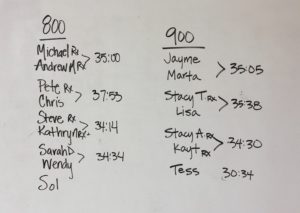 800
Michael Rx
Andrew M Rx > 35:00
Pete Rx
Chris > 37:55
Steve Rx
Kathryn Rx > 34:14
Sarah D
Wendy > 34:34
Sol
900
Jayme
Marta > 35:05
Stacy T. Rx
Lisa > 35:38
Stacy A. Rx
Kay t Rx > 34:30
Tess 30:34